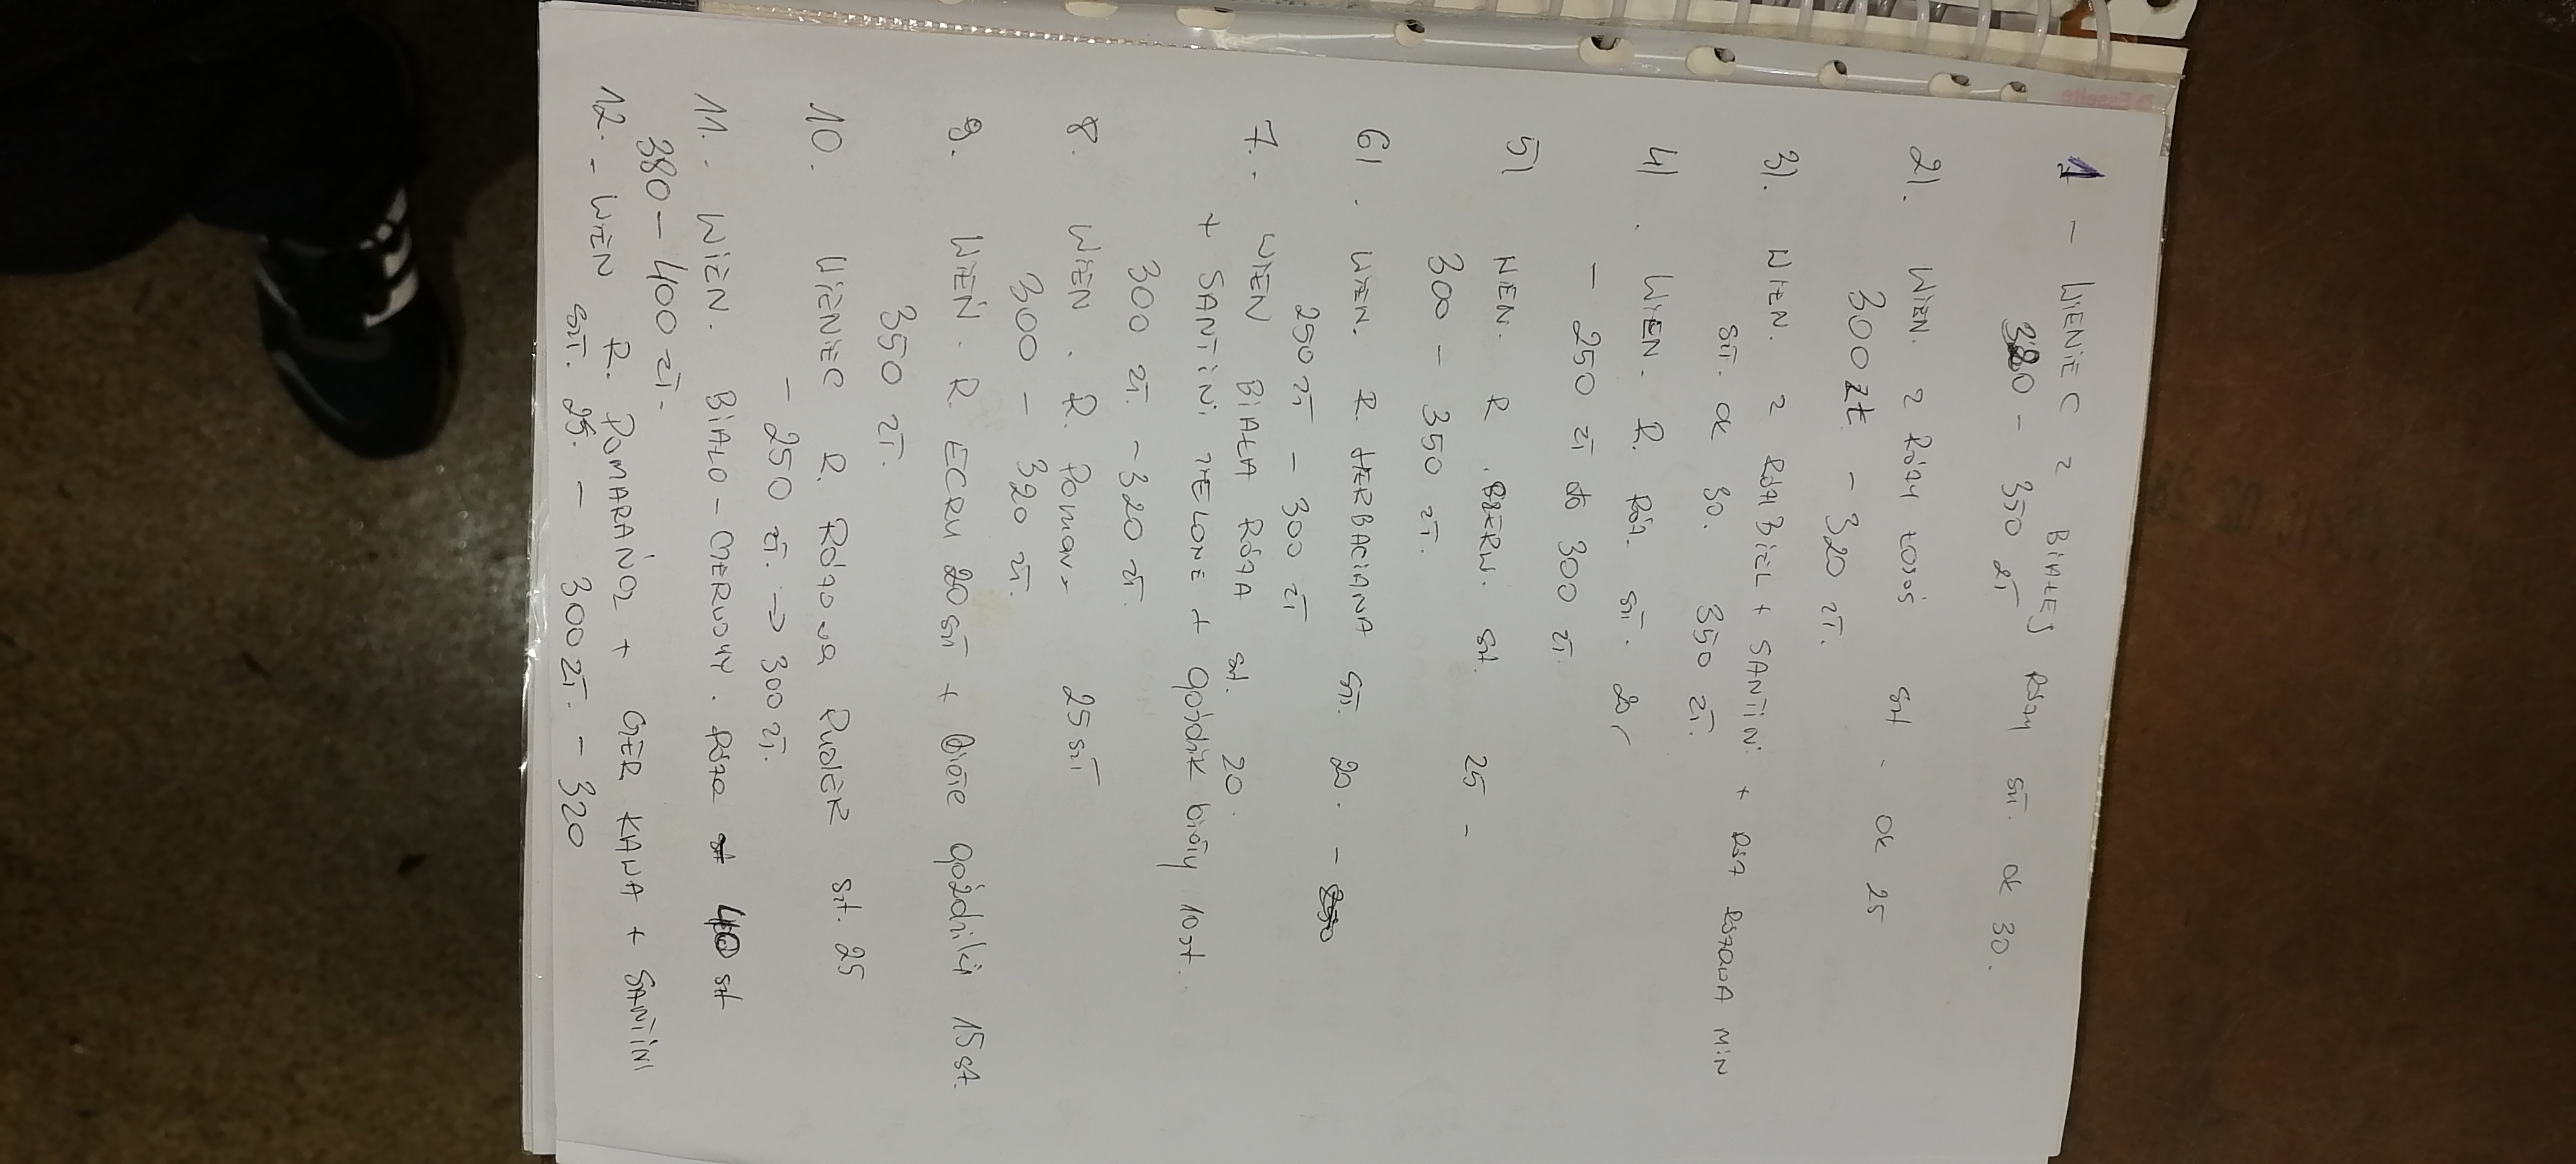 1 - WIENIEC Z BIAŁEJ RÓŻY szt. ok 30.
320 - 350 zł
2). WIEN. Z RÓŻY ŁOSOŚ szt. ok 25
300 zł - 320 zł.
3). WIEN. Z RÓŻ BIEL + SANTINI + RÓŻ RÓŻOWA MIN
szt. ok 30. 350 zł.
4). WIEN. R. RÓŻ. szt. 20
- 250 zł do 300 zł.
5) WIEN. R. szt. 25 -
300 - 350 zł.
6). WIEN. R. HERBACIANA szt. 20. -
250 zł - 300 zł
7. - WIEN BIAŁA RÓŻA szt. 20.
+ SANTINI ZIELONE + goździk biały 10 szt.
300 zł. - 320 zł.
8. WIEN. R. Pomar 25 szt
300 - 320 zł.
9. WIEN. R. ECRU 20 szt + Białe goździki 15 szt.
350 zł.
10. WIENIEC R. RÓŻOWA PUDER szt. 25
- 250 zł. -> 300 zł.
11. - WIEN. BIAŁO - CZERWONY. RÓŻA 40 szt
380 - 400 zł.
12. - WIEN R. POMARAŃCZ + GER KAWA + SANTINI
szt. 25. - 300 zł. - 320